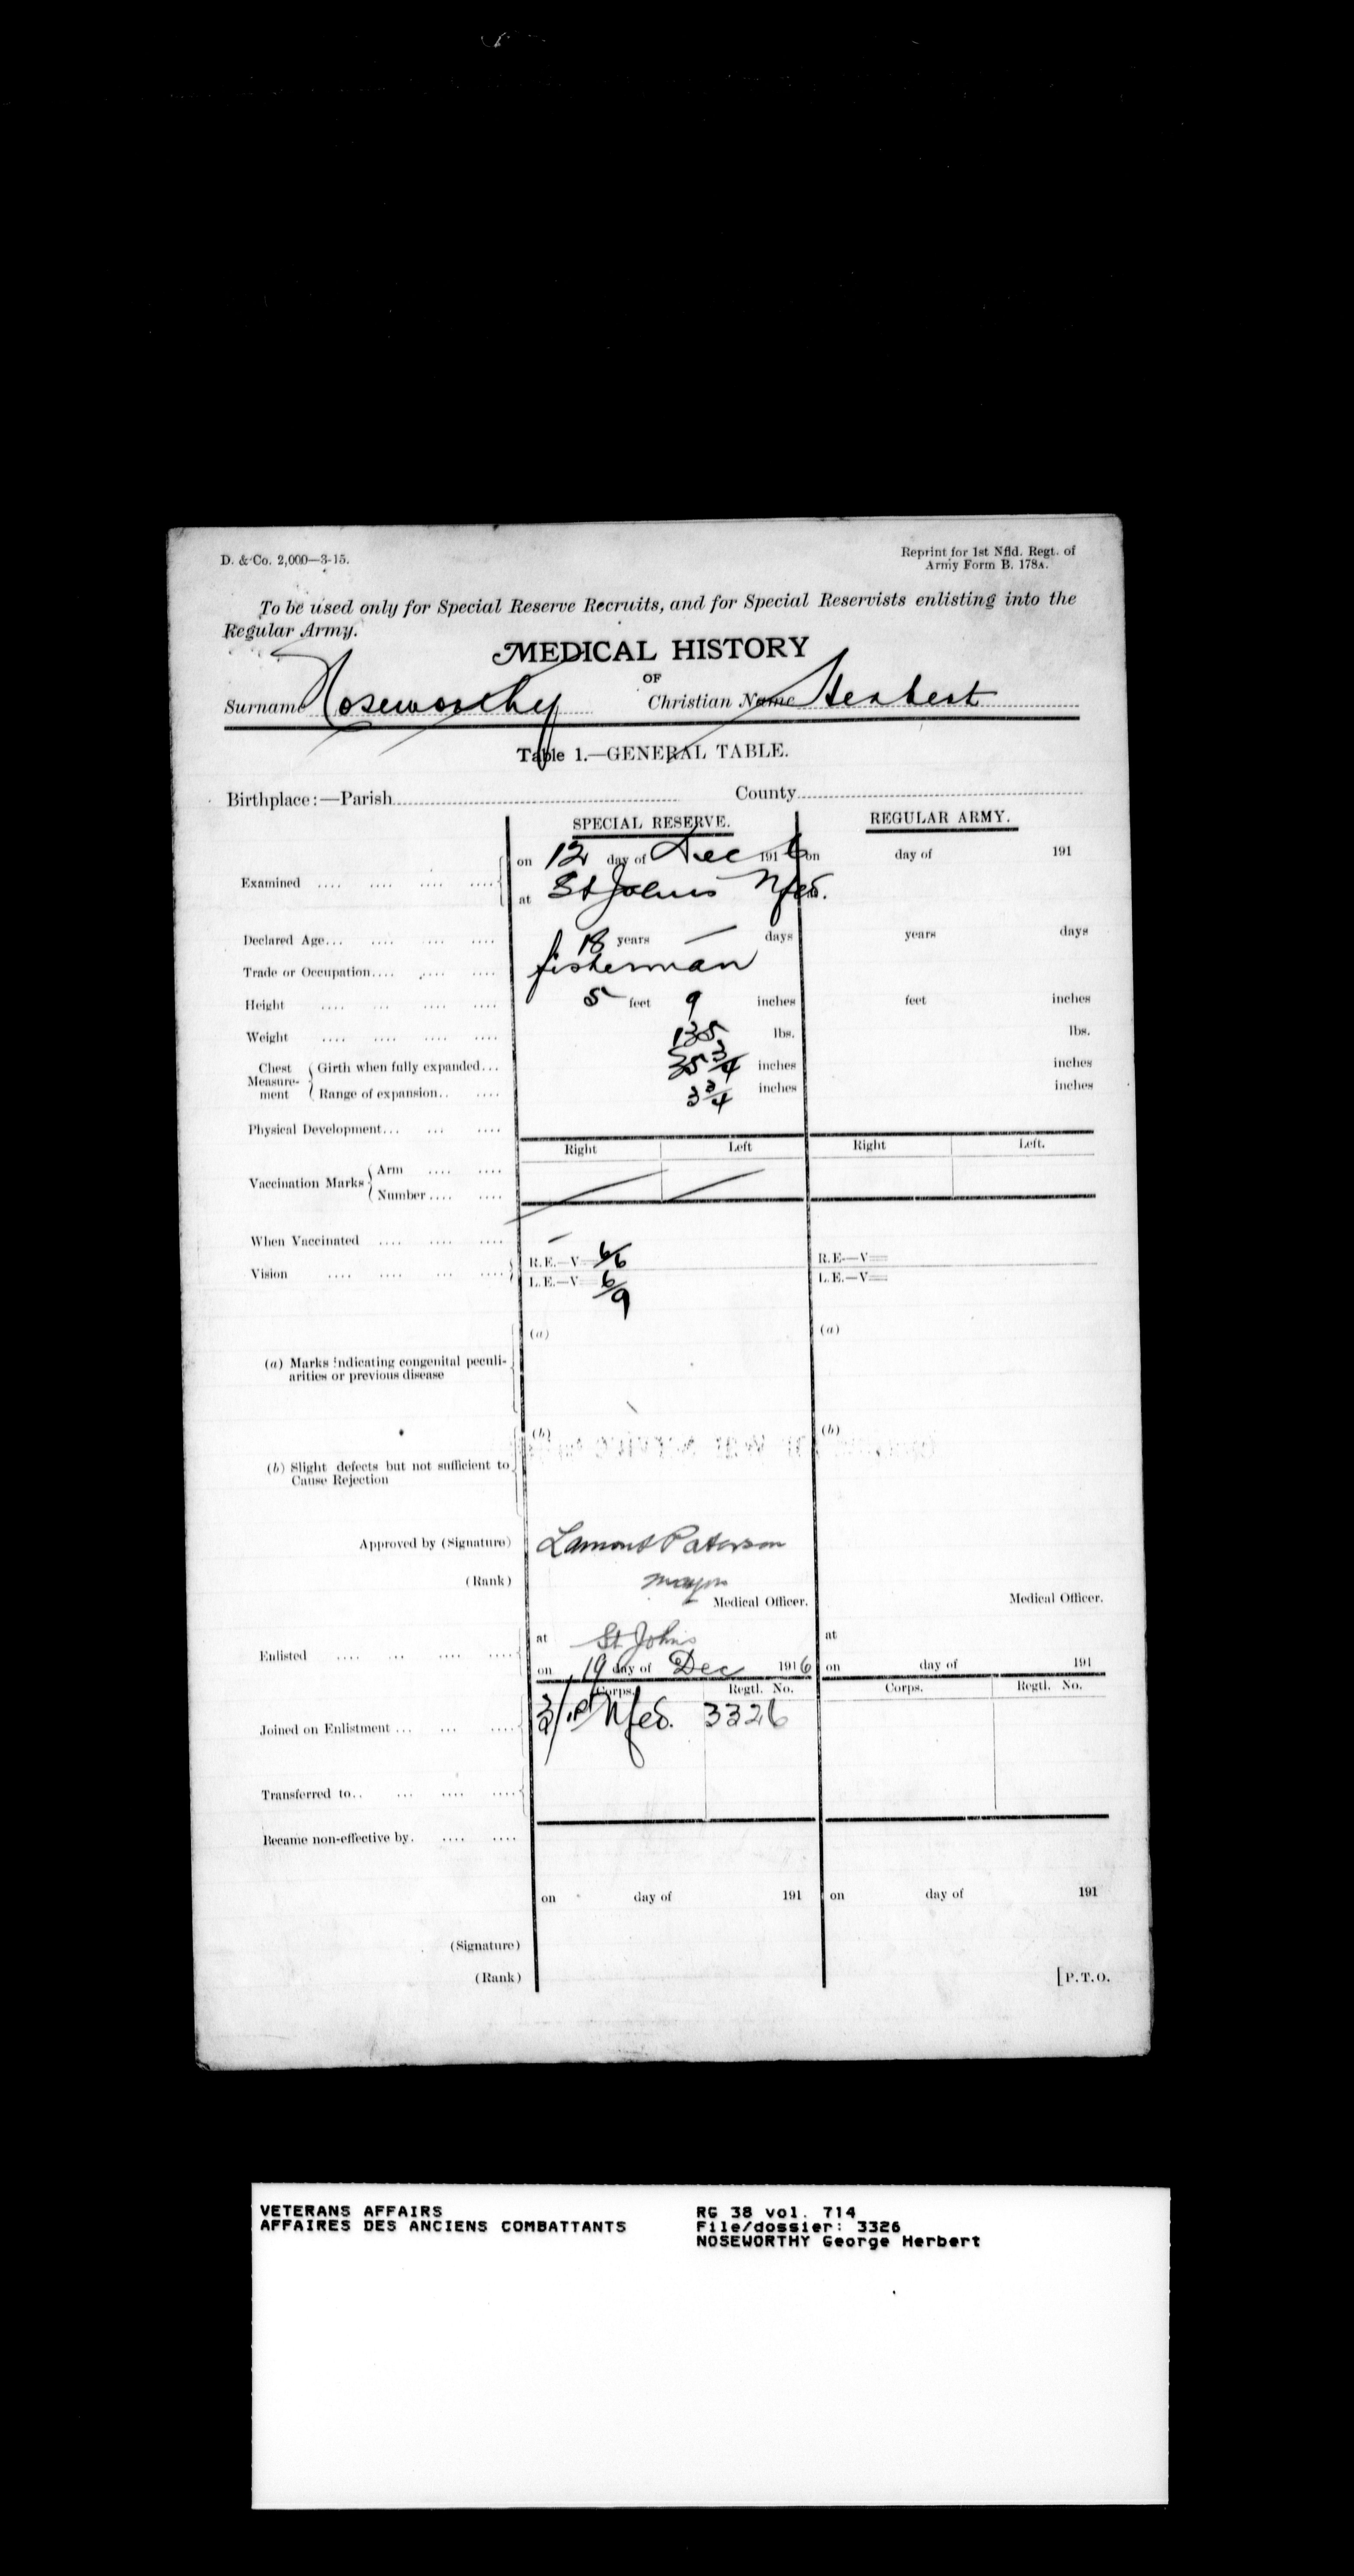 D. & Co. 2,000—3-15.
Reprint for 1st Nfld. Regt. of
Army Form B. 178A.
To be used only for Special Reserve Recruits, and for Special Reservists enlisting into the
Regular Army.
MEDICAL HISTORY
OF
Surname Noseworthy Christian Name Herbert
Table 1.—GENERAL TABLE.
Birthplace:—Parish County
SPECIAL RESERVE. REGULAR ARMY.
Examined on 12 day of Dec 1916 on day of 191
at St Johns Nfld.
Declared Age 18 years — days years days
Trade or Occupation fisherman
Height 5 feet 9 inches feet inches
Weight 135 lbs. lbs.
Chest Measure-ment Girth when fully expanded 35 3/4 inches inches
Range of expansion 3 3/4 inches inches
Physical Development
Right Left Right Left.
Vaccination Marks Arm
Number
When Vaccinated —
Vision R.E.—V= 6/6 R.E—V=
L.E.—V= 6/9 L.E.—V=
(a) Marks indicating congenital peculi-
arities or previous disease
(a) (a)
(b) Slight defects but not sufficient to
Cause Rejection
(b) (b)
Approved by (Signature) Lamont Paterson
(Rank) Major
Medical Officer. Medical Officer.
Enlisted at St Johns at
on 19 day of Dec 1916 on day of 191
Corps. Regtl. No. Corps. Regtl. No.
Joined on Enlistment 1st Nfld. 3326
Transferred to
Became non-effective by
on day of 191 on day of 191
(Signature)
(Rank)
[P.T.O.
VETERANS AFFAIRS
AFFAIRES DES ANCIENS COMBATTANTS
RG 38 vol. 714
File/dossier: 3326
NOSEWORTHY George Herbert